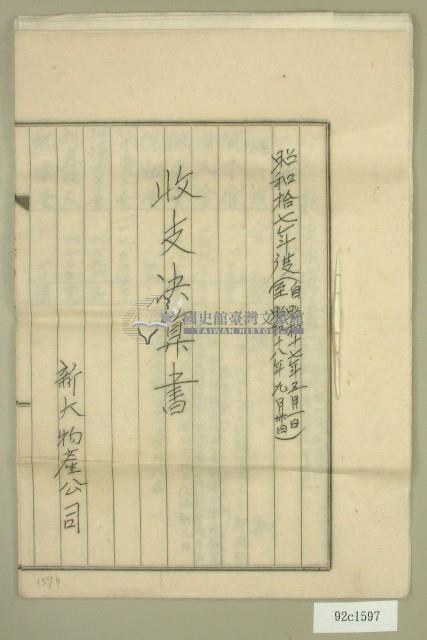 昭和拾七年度(自昭和十七年五月一日
至昭和十八年九月卅日)
收支決算書
新大物產公司
國史館臺灣文獻館
TAIWAN HISTORICA
1597
92c1597